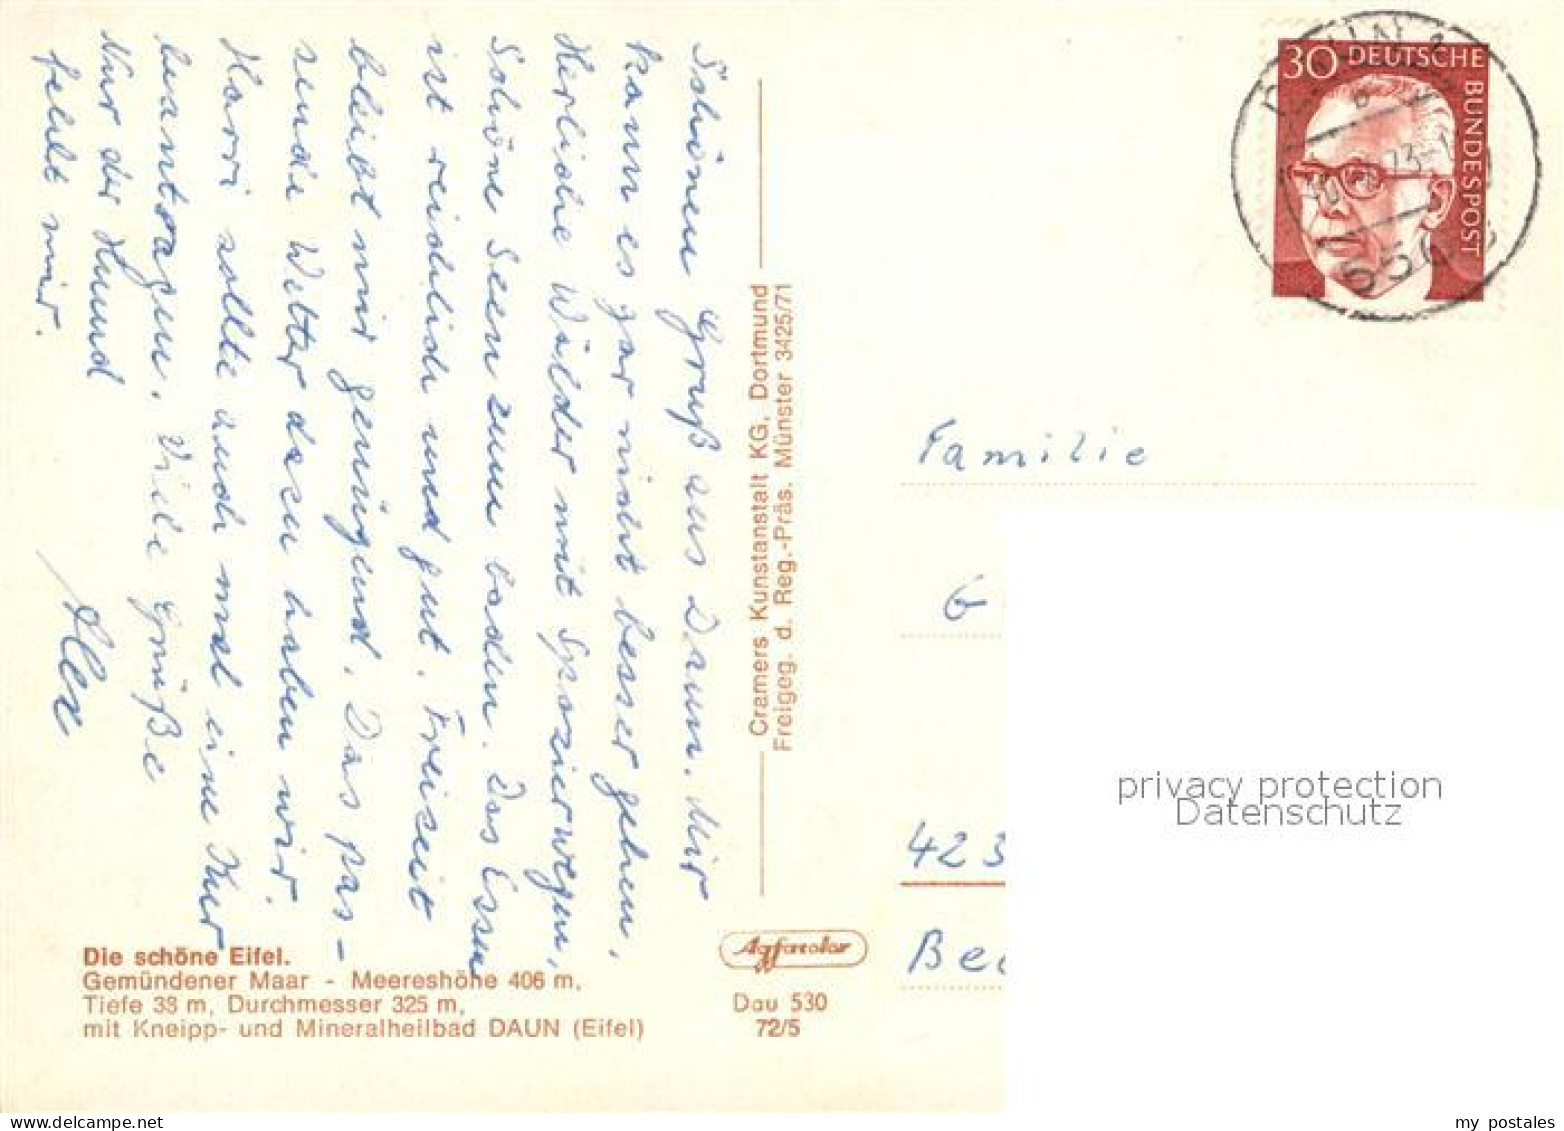 Schönen Gruß aus Daun. Mir
kann es gar nicht besser gehen,
Herliche Wälder mit Spazierwegen,
Schöne Seen zum baden. Das Essen
ist reichlich und gut. Freizeit
bleibt mir genügend. Das pas-
sende Wetter dazu haben wir.
Harri sollte auch mal eine Kur
beantragen. Viele Grüße
Nur der Hund
fehlt mir.
Alex
Cramers Kunstanstalt KG, Dortmund
Freigeg. d. Reg.-Präs. Münster 3425/71
Die schöne Eifel.
Gemündener Maar - Meereshöhe 406 m,
Tiefe 38 m, Durchmesser 325 m,
mit Kneipp- und Mineralheilbad DAUN (Eifel)
Agfacolor
Dau 530
72/5
30 DEUTSCHE
BUNDESPOST
Familie
G
423
privacy protection
Datenschutz
my postales